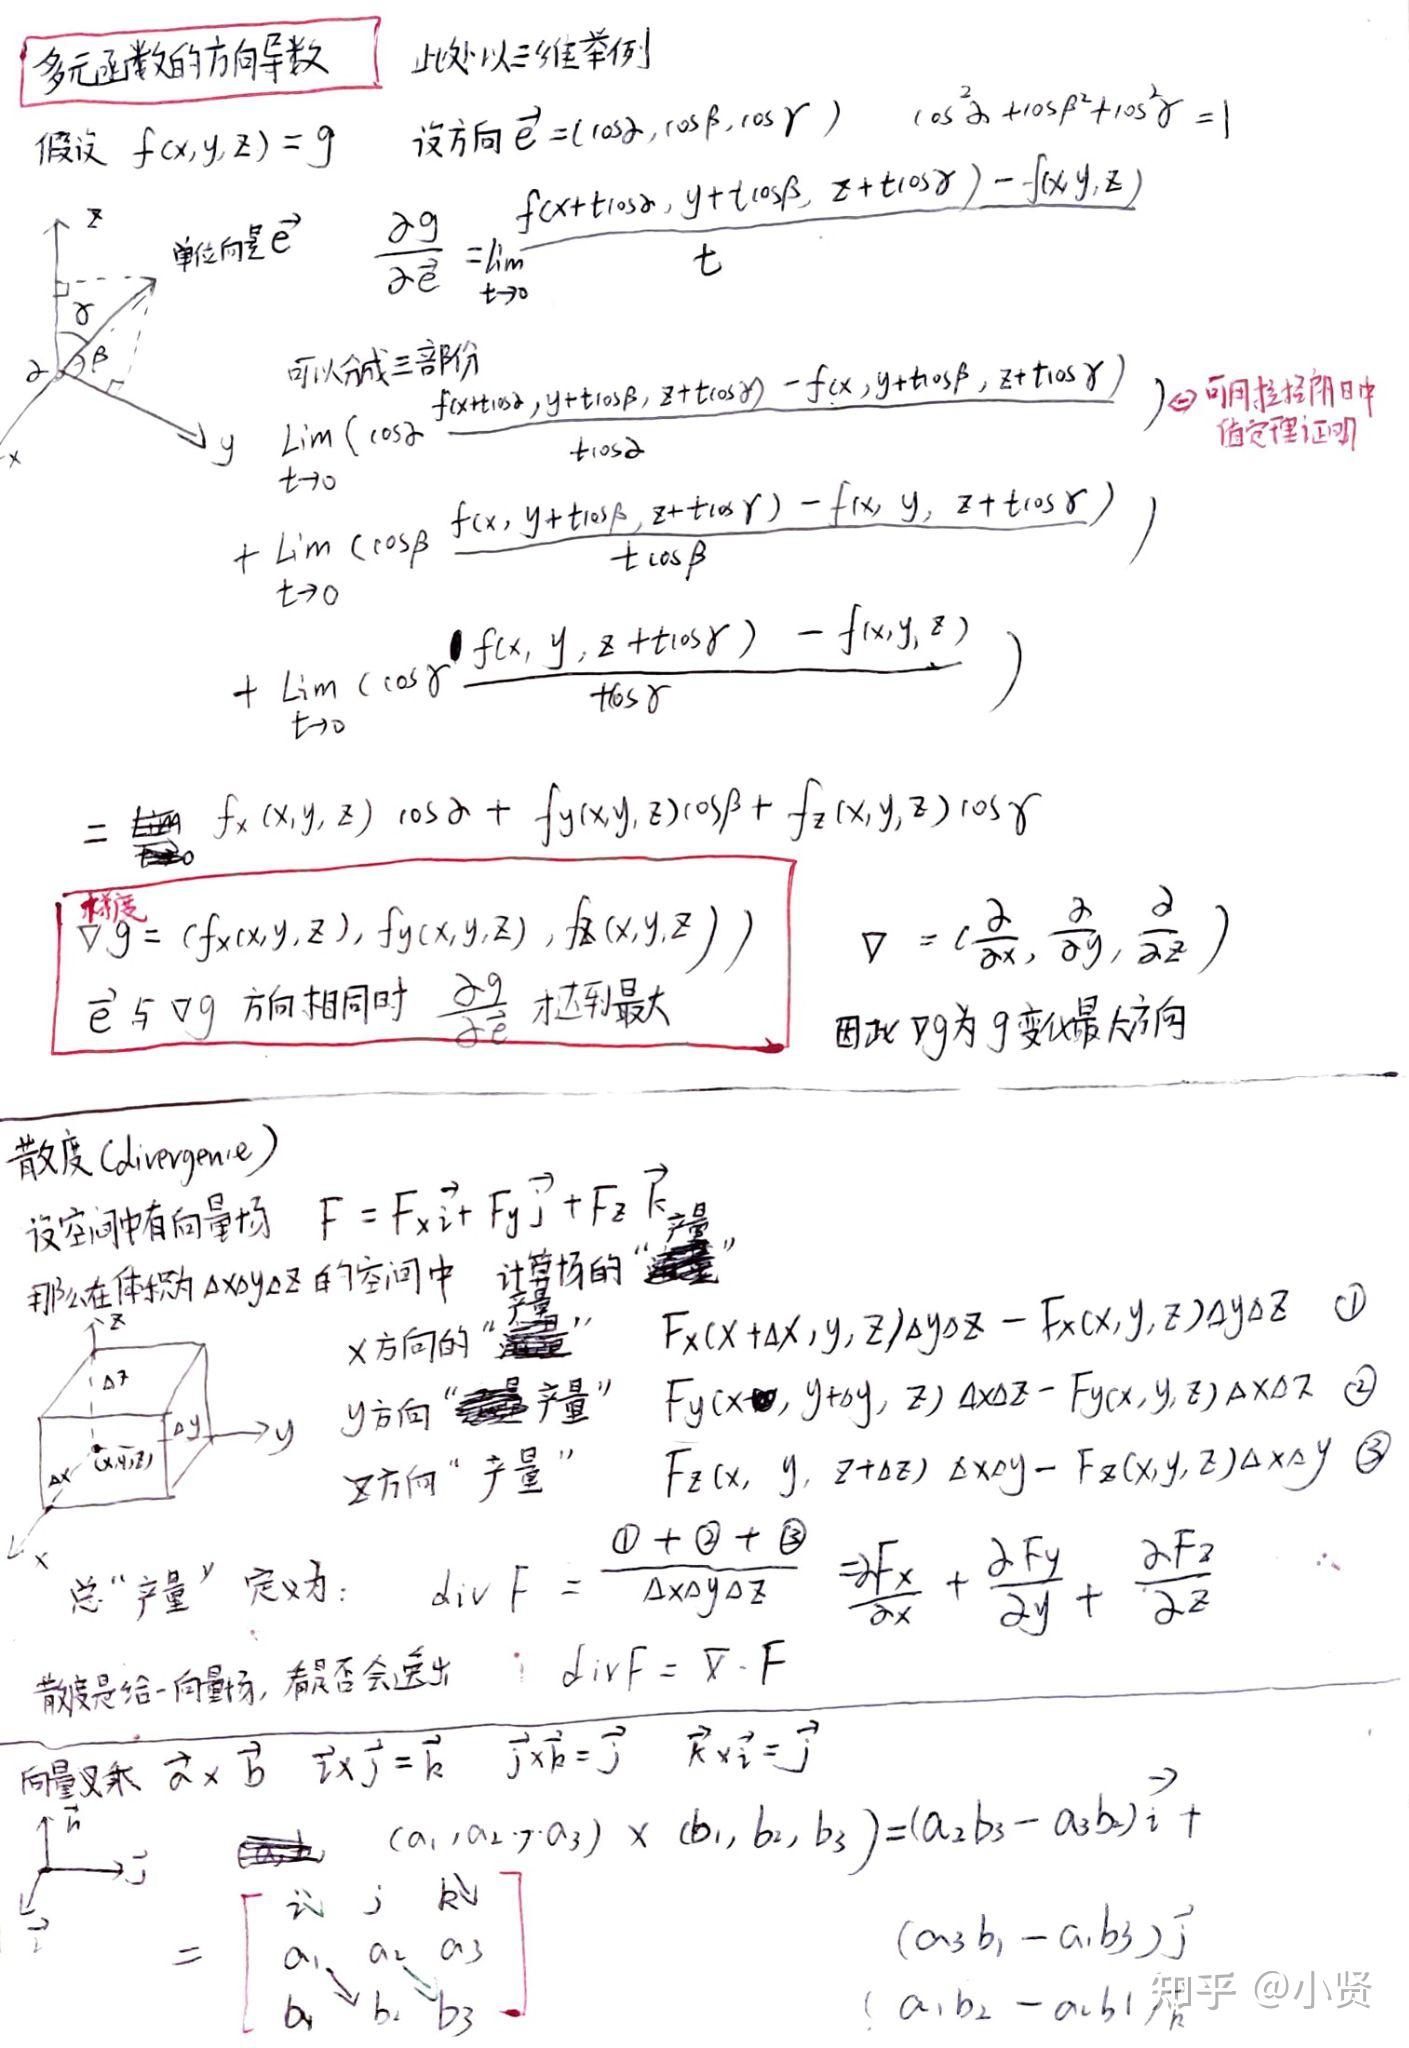 多元函数的方向导数 此处以三维举例
假设 f(x,y,z)=g 设方向 e⃗=(cosα,cosβ,cosγ) cos²α+cosβ²+cos²γ=1
z
单位向量e⃗ ∂g/∂e⃗ = lim t→0 [f(x+tcosα, y+tcosβ, z+tcosγ) - f(x,y,z)] / t
γ
α β
y
x
可以分成三部份
Lim t→0 (cosα [f(x+tcosα, y+tcosβ, z+tcosγ) - f(x, y+tcosβ, z+tcosγ)] / tcosα) ⇔ 可用拉格朗日中
值定理证明
+ Lim t→0 (cosβ [f(x, y+tcosβ, z+tcosγ) - f(x, y, z+tcosγ)] / tcosβ)
+ Lim t→0 (cosγ [f(x, y, z+tcosγ) - f(x,y,z)] / tcosγ)
= fx(x,y,z) cosα + fy(x,y,z)cosβ + fz(x,y,z)cosγ
梯度
∇g = (fx(x,y,z), fy(x,y,z), fz(x,y,z)) ∇ = (∂/∂x, ∂/∂y, ∂/∂z)
e⃗与∇g 方向相同时 ∂g/∂e⃗ 才达到最大 因此∇g为g变化最大方向
散度(divergence)
设空间中有向量场 F = Fx i⃗ + Fy j⃗ + Fz k⃗
那么在体积为ΔxΔyΔz的空间中 计算场的“产量”
x方向的“产量” Fx(x+Δx, y, z)ΔyΔz - Fx(x,y,z)ΔyΔz ①
y方向“产量” Fy(x, y+Δy, z) ΔxΔz - Fy(x,y,z)ΔxΔz ②
z方向“产量” Fz(x, y, z+Δz) ΔxΔy - Fz(x,y,z)ΔxΔy ③
z
Δz
Δy y
Δx (x,y,z)
x
总“产量”定义为: div F = (①+②+③)/(ΔxΔyΔz) = ∂Fx/∂x + ∂Fy/∂y + ∂Fz/∂z
散度是给一向量场, 看是否会送出 divF = ∇·F
向量叉乘 a⃗×b⃗ i⃗×j⃗=k⃗ j⃗×k⃗=j⃗ k⃗×i⃗=j⃗
k⃗
j⃗
i⃗
(a1,a2,a3) × (b1,b2,b3) = (a2b3 - a3b2)i⃗ +
(a3b1 - a1b3)j⃗
(a1b2 - a2b1)k⃗
= [ i j k
a1 a2 a3
b1 b2 b3 ]
知乎 @小贤